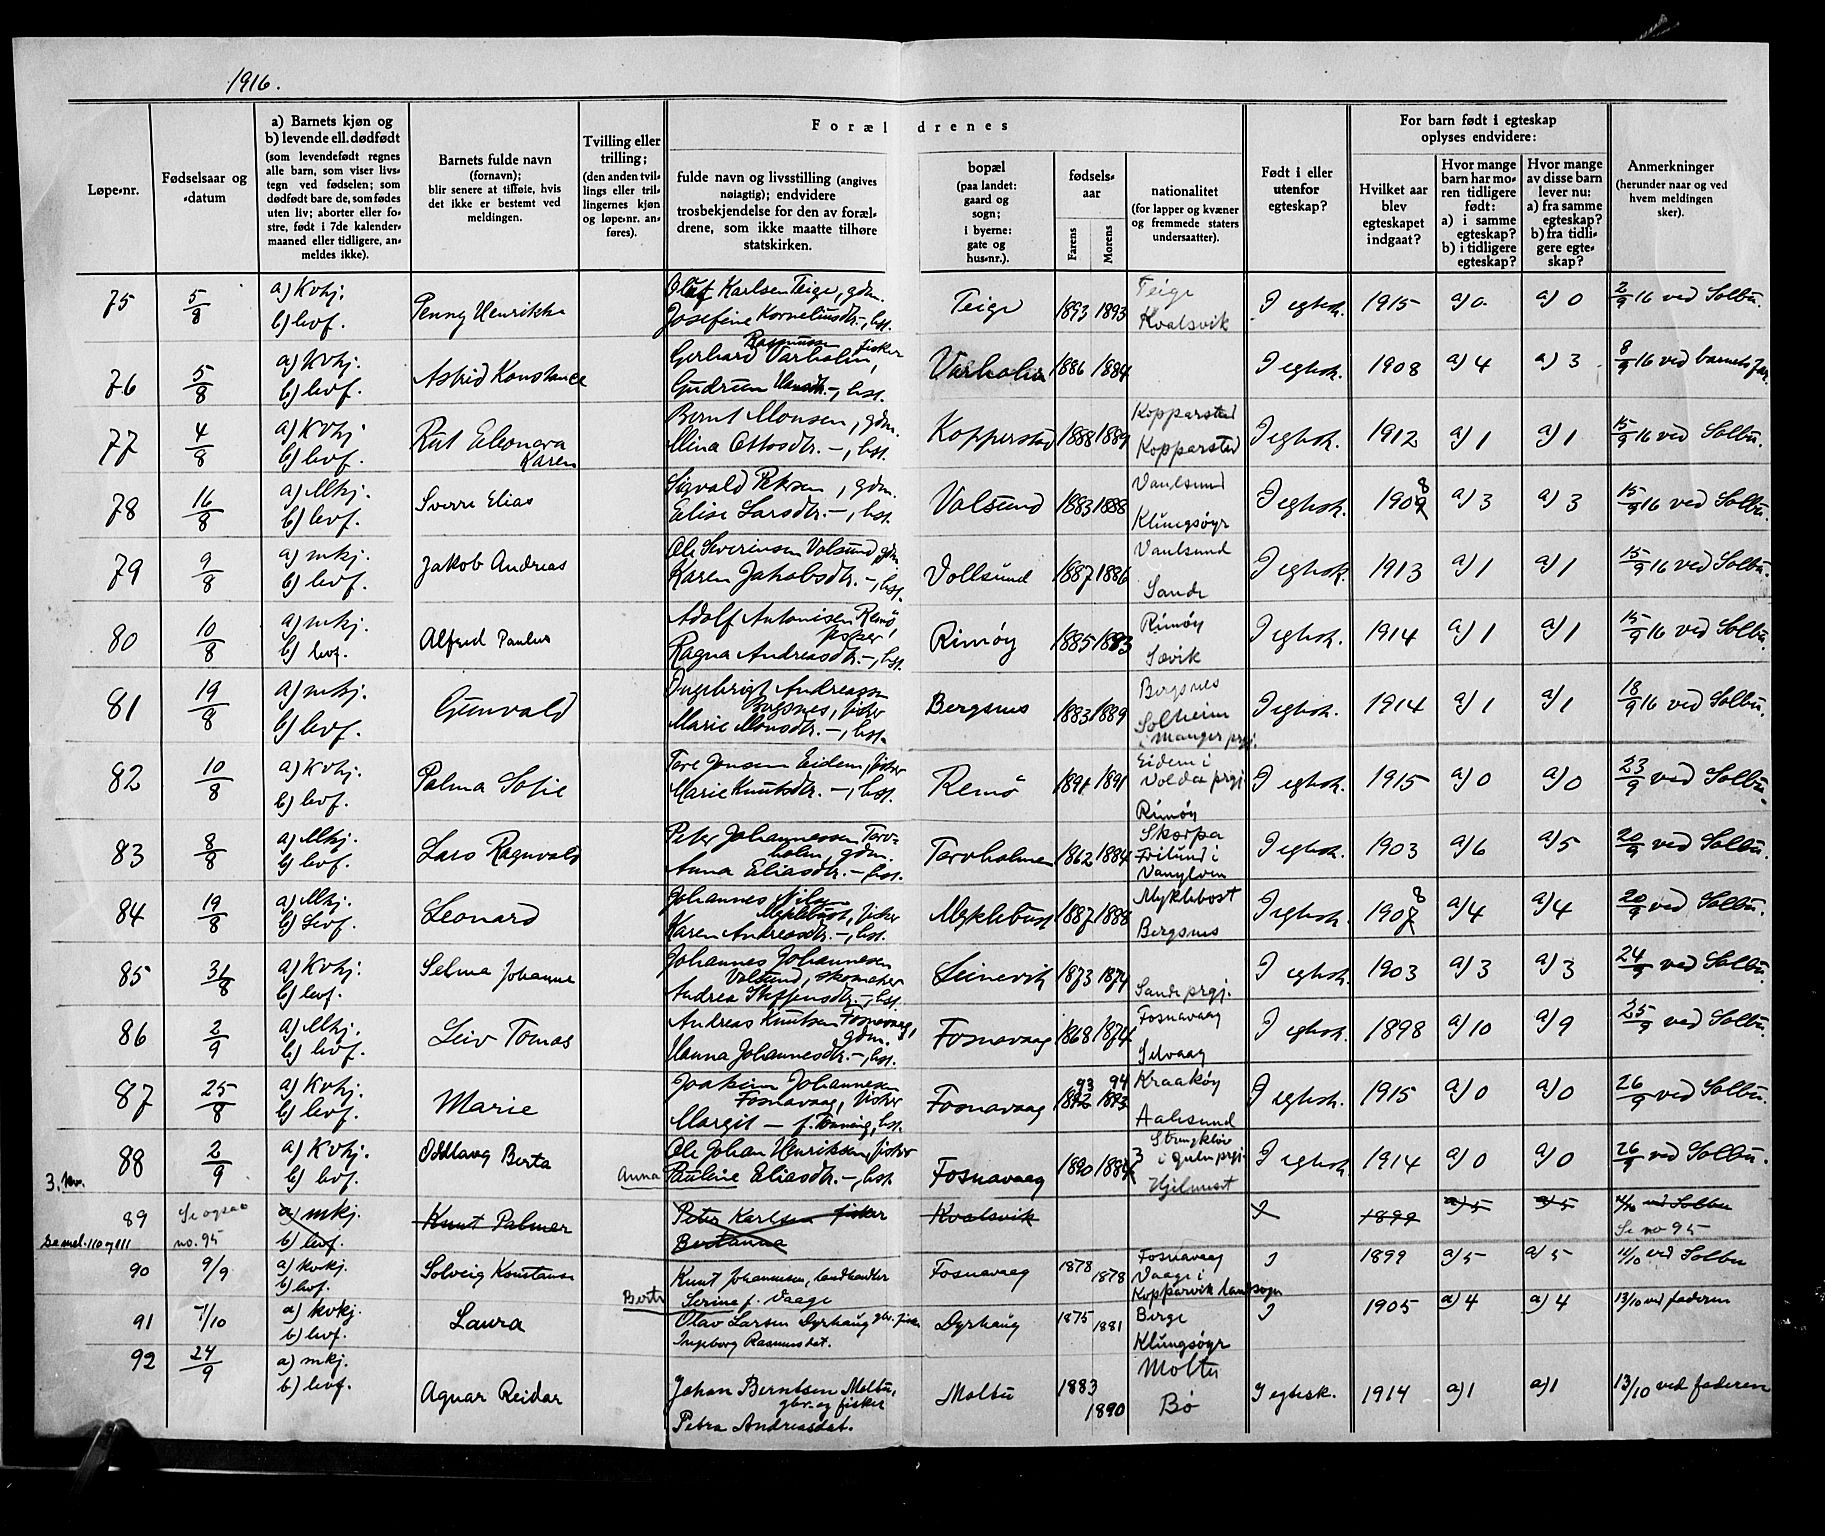 1916.
Forældrenes
For barn født i egteskap oplyses endvidere:
Løpe-nr.
Fødselsaar og -datum
a) Barnets kjøn og
b) levende ell. dødfødt
(som levendefødt regnes
alle barn, som viser livs-
tegn ved fødselen; som
dødfødt bare de, som fødes
uten liv; aborter eller fo-
stre, født i 7de kalender-
maaned eller tidligere, an-
meldes ikke).
Barnets fulde navn
(fornavn);
blir senere at tilføie, hvis
det ikke er bestemt ved
meldingen.
Tvilling eller
trilling;
(den anden tvil-
lings eller tril-
lingernes kjøn
og løpe-nr. an-
føres).
fulde navn og livsstilling (angives
nøiagtig); endvidere
trosbekjendelse for den av foræl-
drene, som ikke maatte tilhøre
statskirken.
bopæl
(paa landet:
gaard og
sogn;
i byerne:
gate og
hus-nr.).
fødsels-
aar
Farens
Morens
nationalitet
(for lapper og kvæner
og fremmede staters
undersaatter).
Født i eller
utenfor
egteskap?
Hvilket aar
blev
egteskapet
indgaat?
Hvor mange
barn har mo-
ren tidligere
født:
a) i samme
egteskap?
b) i tidligere
egteskap?
Hvor mange
av disse barn
lever nu:
a) fra samme
egteskap?
b) fra tidli-
gere egte-
skap?
Anmerkninger
(herunder naar og ved
hvem meldingen
sker).
75 5/8 a) Kvkj. b) levf. Penny Henrikke Olaf Karlsen Teige, gdm. Josefine Korneliusdtr. -, hst. Teige 1893 1893 Teige Kvalsvik I egtsk. 1915 a) 0 a) 0 2/9 16 ved Solbu.
76 5/8 a) Kvkj. b) levf. Astrid Konstance Gerhard Rasmussen Varholm, fisker Gudrun Hansdtr. -, hst. Varholm 1886 1884 I egtsk. 1908 a) 4 a) 3 8/9 16 ved barnets far.
77 4/8 a) Kvkj b) levf. Rut Eleonora Karen Bernt Monsen, gdm. Mina Ottosdtr. -, hst. Kopperstad 1888 1889 Kopparstad Kopparstad I egtsk. 1912 a) 1 a) 1 15/9 16 ved Solbu.
78 16/8 a) Mkj. b) levf. Sverre Elias Sigvald Petersen, gdm. Elise Larsdtr. -, hst. Volsund 1883 1888 Vaulsund Klungsøyr I egtsk. 1908 a) 3 a) 3 15/9 16 ved Solbu.
79 9/8 a) mkj. b) levf. Jakob Andreas Ole Severinsen Volsund, gdm. Karen Jakobsdtr. -, hst. Vollsund 1887 1886 Vaulsund Sande I egtsk. 1913 a) 1 a) 1 15/9 16 ved Solbu.
80 10/8 a) mkj. b) levf. Alfred Paulus Adolf Antonisen Remö, fisker, Ragna Andreasdtr. -, hst. Rimøy 1885 1883 Rimøy Sævik I egtsk. 1914 a) 1 a) 1 15/9 16 ved Solbu.
81 19/8 a) mkj. b) levf. Gunvald Ingebrigt Andreassen Bergsnes, fisker Marie Monsdtr. -, hst. Bergsnes 1883 1889 Bergsnes Solheim i Manger prgj. I egtsk. 1914 a) 1 a) 1 18/9 16 ved Solbu.
82 10/8 a) Kvkj. b) levf. Palma Sofie Tore Jensen Eidem, fisker Marie Knutsdtr. -, hst. Remö 1891 1891 Eidem i Volda prgj. Rimøy I egtsk. 1915 a) 0 a) 0 23/9 ved Solbu.
83 8/8 a) Mkj. b) levf. Lars Ragnvald Peter Johannessen Torvholm, gdm. Anna Eliasdtr. - hst. Torvholmen 1862 1884 Skorpa Fitlund i Vanylven I egtsk. 1903 a) 6 a) 5 20/9 ved Solbu.
84 19/8 a) Mkj. b) Levf. Leonard Johannes Nilsen Myklebust, fisker Karen Andreasdtr. -, hst. Myklebust 1887 1888 Myklebost Bergsnes I egtsk. 1908 a) 4 a) 4 20/9 ved Solbu.
85 31/8 a) Kvkj. b) levf. Selma Johanne Johannes Johannesen Volsund, skomaker Andrea Steffensdtr. -, hst. Leinevik 1873 1874 Sande prgj. I egtsk. 1903 a) 3 a) 3 24/9 ved Solbu.
86 2/9 a) Mkj. b) levf. Leiv Tomas Andreas Knutsen Fosnavaag, gdm. Hanna Johannesdtr. -, hst. Fosnavaag 1868 1874 Fosnavaag Selvaag I egtsk. 1898 a) 10 a) 9 25/9 ved Solbu.
87 25/8 a) Kvkj. b) levf. Marie Joakim Johannesen Fosnavaag, fisker Margit - f. Tønning, hst. Fosnavaag 1892 93 1893 94 Kraakøy Aalesund I egtsk. 1915 a) 0 a) 0 26/9 ved Solbu.
88 2/9 a) Kvkj. b) levf. Oddlaug Berta Ole Johan Henriksen, fisker Anna Pauline Eliasdtr. -, hst. Fosnavaag 1890 1884 3 i Gulen prgj. Hjelmeset I egtsk. 1914 a) 0 a) 0 26/9 ved Solbu.
89 Se ogsaa no. 95 a) mkj. b) levf. Knut Palmer Peter Karlsen fisker Bertanna Kvalsvik I 1899 a) 5 a) 5 11/10 ved Solbu Se no 95
90 9/9 a) kvkj. b) levf. Solveig Konstanse Knut Johannesen, landhandler Berte Serine f. Vaage Fosnavaag 1878 1878 Fosnavaag Vaage i Kopparvik landsogn I 1899 a) 5 a) 5 11/10 ved Solbu
91 1/10 a) kvkj. b) levf. Laura Olav Larsen Dyrhaug gbr. fisker Ingeborg Rasmusdat. Dyrhaug 1875 1881 Berge Klungsøyr I 1905 a) 4 a) 4 13/10 ved faderen
92 24/9 a) mkj. b) levf. Agnar Reidar Johan Berntsen Moltu, gbr. og fisker Petra Andreasdat. Moltu 1883 1890 Moltu Bø I egtesk. 1914 a) 1 a) 1 13/10 ved faderen